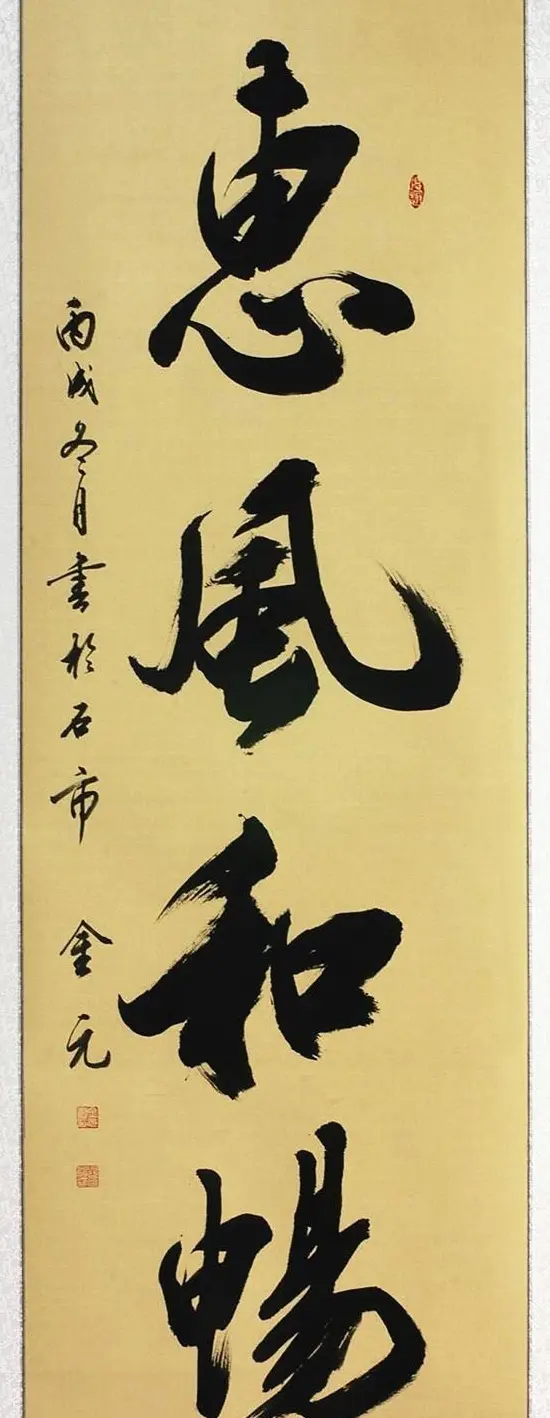 惠風和暢
丙戌冬月書於石市
金元